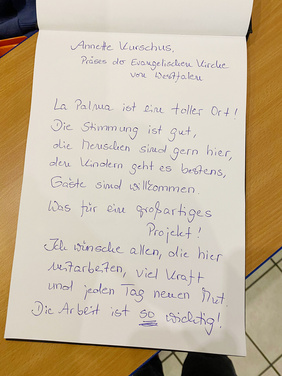 Annette Kurschus,
Präses der Evangelischen Kirche
von Westfalen
La Palma ist ein toller Ort!
Die Stimmung ist gut,
die Menschen sind gern hier,
den Kindern geht es bestens,
Gäste sind willkommen.
Was für eine großartiges
Projekt!
Ich wünsche allen, die hier
mitarbeiten, viel Kraft
und jeden Tag neuen Mut.
Die Arbeit ist so wichtig!